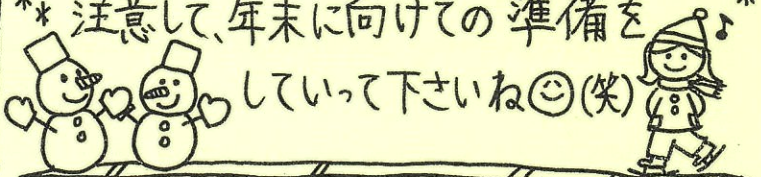 ** 注意して、年末に向けての 準備を *
していって下さいね☺(笑)